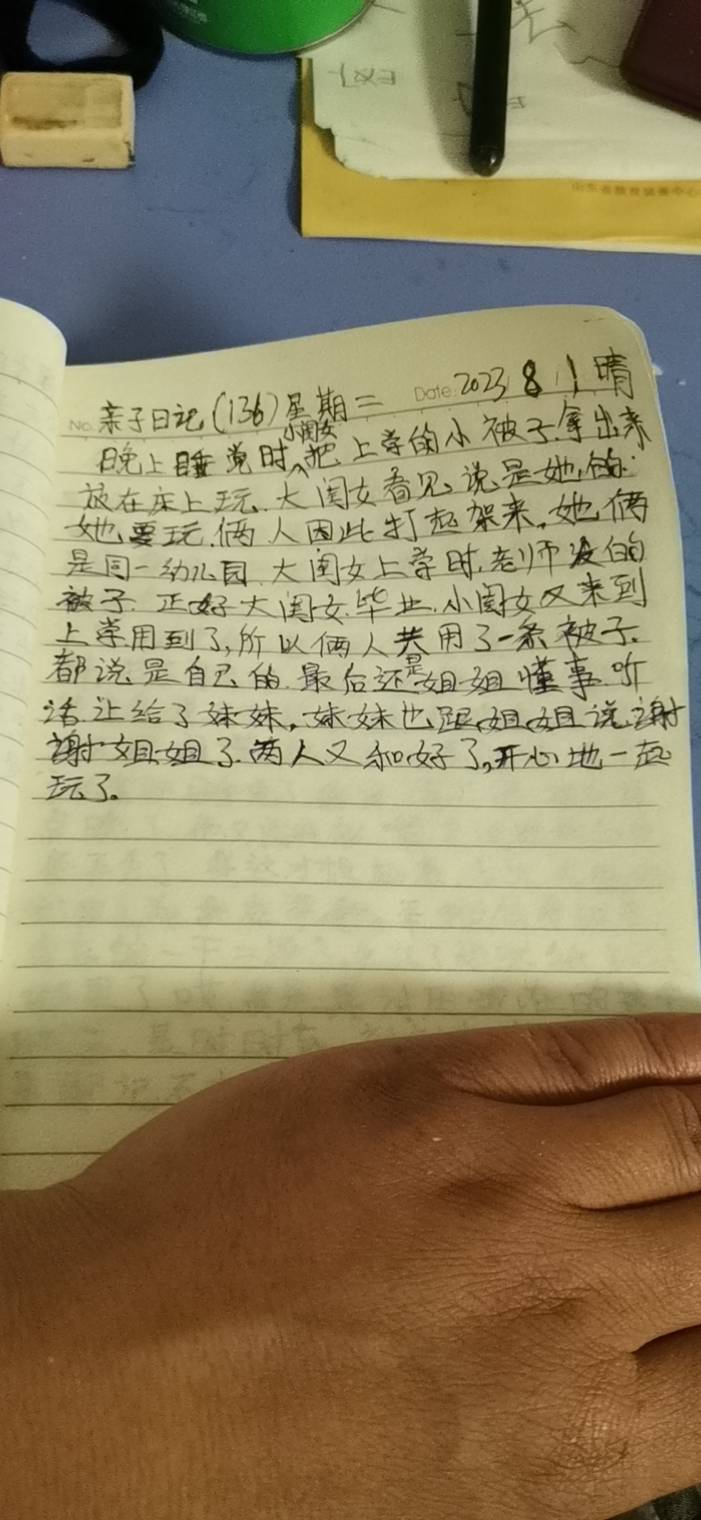 山东省教育招生中心
No. 亲子日记(136)星期二 Date. 2023 8 1 晴
晚上睡觉时小闺女把上学的小被子.拿出来
放在床上玩.大闺女看见说是她的.
她要玩.俩人因此打起架来.她俩
是同一幼儿园.大闺女上学时.老师发的
被子.正好大闺女.毕业.小闺女又来到
上学用到了,所以俩人共用了一条被子.
都说是自己的.最后还是姐姐懂事.听
话.让给了妹妹.妹妹也跟姐姐说谢
谢姐姐了.两人又和好了,开心地一起
玩了。